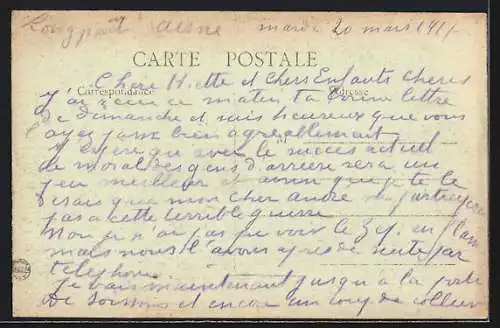 Longpont Aisne mardi 20 mars 1917
CARTE POSTALE
Correspondance Adresse
Chère Miette et chers Enfants chéris
J'ai reçu ce matin ta bonne lettre
de dimanche et suis heureux que vous
ayez bien agréablement
J'espère que avec le succès actuel
de moral des gens d'arrière sera un
peu meilleur et ainsi que je te le
disais que mon cher andré ne
pas a cette terrible guerre
Moi je n'ai pas pu voir le Zep. en
mais nous l'avons de suite par
téléphone.
Je vais maintenant jusqu'à la porte
de Soissons et encore un coup de collier